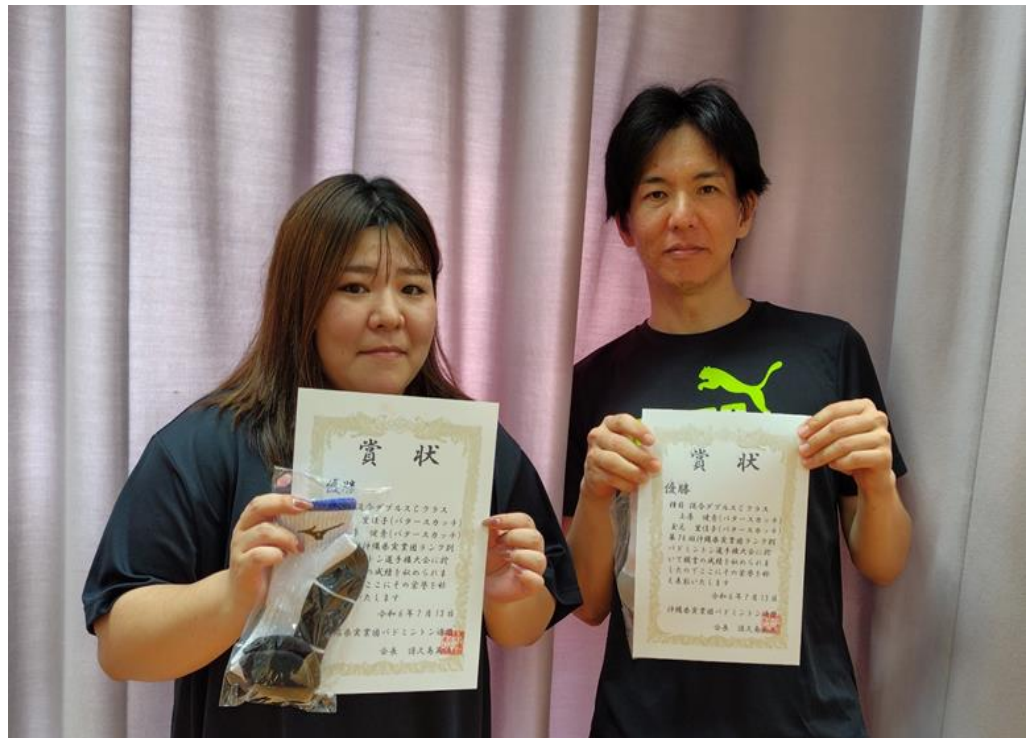 賞 状
優勝
混合ダブルスCクラス
里佳子(バタースカッチ)
健秀(バタースカッチ)
沖縄県実業団ランク別
トン選手権大会に於
の成績を収められま
ここにその栄誉を称
いたします
令和6年7月13日
県実業団バドミントン連盟
会長
賞 状
優勝
種目 混合ダブルスCクラス
健秀(バタースカッチ)
里佳子(バタースカッチ)
沖縄県実業団ランク別
バドミントン選手権大会に於
いて頭書の成績を収められま
したのでここにその栄誉を称
え表彰いたします
令和6年7月13日
沖縄県実業団バドミントン連盟
会長